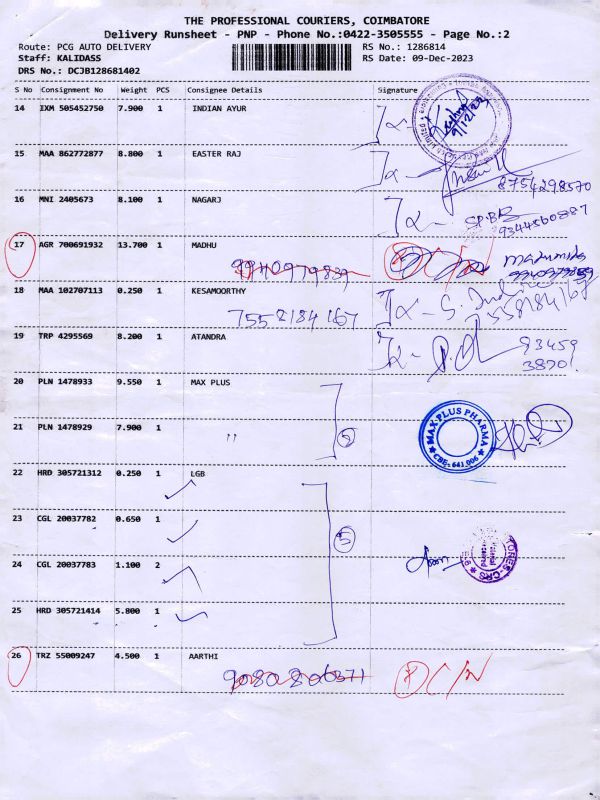 THE PROFESSIONAL COURIERS, COIMBATORE
Delivery Runsheet - PNP - Phone No.:0422-3505555 - Page No.:2
Route: PCG AUTO DELIVERY RS No.: 1286814
Staff: KALIDASS RS Date: 09-Dec-2023
DRS No.: DCJB128681402
S No Consignment No Weight PCS Consignee Details Signature
14 IXM 505452750 7.900 1 INDIAN AYUR
9/12/23
15 MAA 862772877 8.800 1 EASTER RAJ
8754298570
16 MNI 2405673 8.100 1 NAGARJ
9344560887
17 AGR 700691932 13.700 1 MADHU
9940979839
18 MAA 102707113 0.250 1 KESAMOORTHY
7558184167
7558184167
19 TRP 4295569 8.200 1 ATANDRA
93459
3870
20 PLN 1478933 9.550 1 MAX PLUS
21 PLN 1478929 7.900 1 "
2
MAX-PLUS PHARMA
CBE- 641 006
22 HRD 305721312 0.250 1 LGB
23 CGL 20037782 0.650 1
5
24 CGL 20037783 1.100 2
25 HRD 305721414 5.800 1
26 TRZ 55009247 4.500 1 AARTHI
D C/N